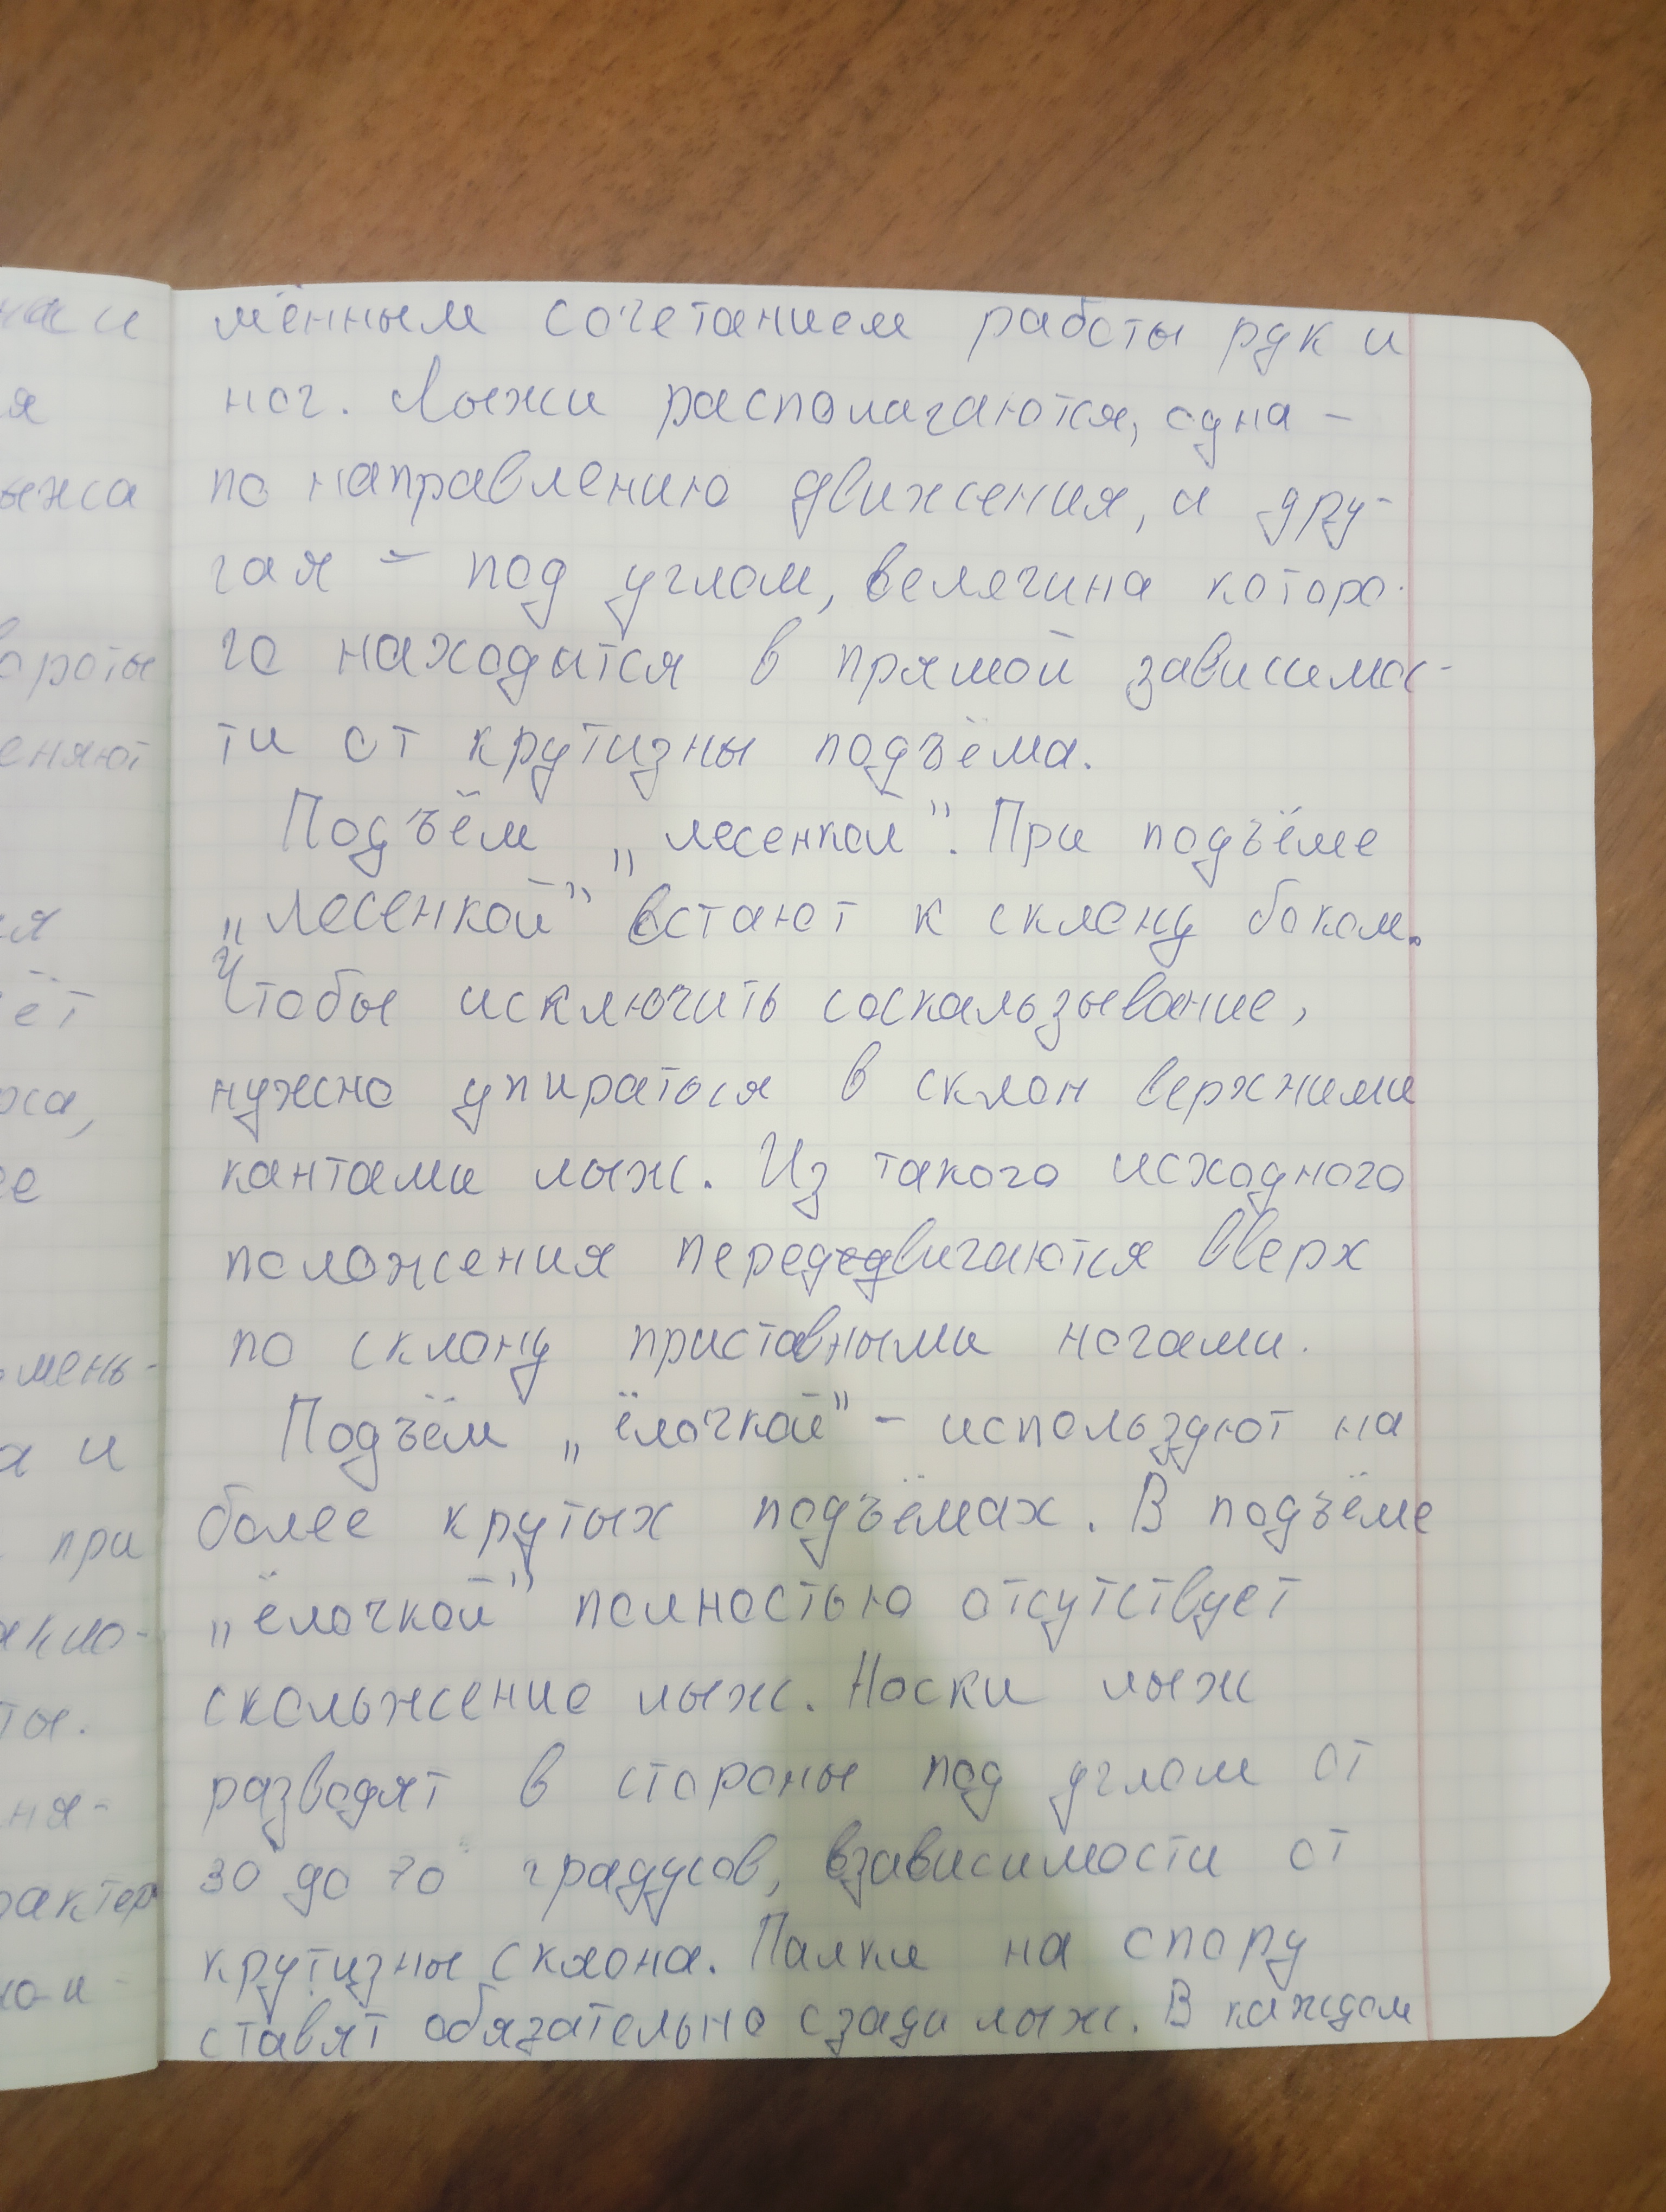 мённым сочетанием работы рук и
ног. Лыжи располагаются, одна -
по направлению движения, и дру-
гая - под углом, велечина которо-
го находится в прямой зависимос-
ти от крутизны подъёма.
Подъём „лесенкой". При подъёме
„лесенкой" встают к склону боком.
Чтобы исключить соскальзывание,
нужно упираться в склон верхними
кантами лыж. Из такого исходного
положения передвигаются вверх
по склону приставными ногами.
Подъём „ёлочкой" - используют на
более крутых подъёмах. В подъёме
„ёлочкой" полностью отсутствует
скольжение лыж. Носки лыж
разводят в стороны под углом от
30 до 70 градусов, взависимости от
крутизны склона. Палки на спору
ставят обязательно сзади лыж. В каждом